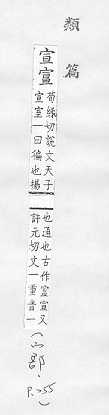 類篇
宣
荀緣切說文天子
宣室一曰徧也揚
也通也古作宣又
許元切文一重音一
(宀部, P.255)